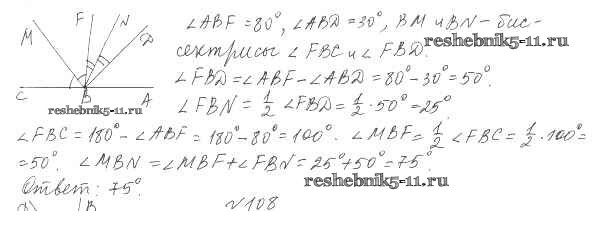 M F N D
C B A
reshebnik5-11.ru
∠ABF = 80°, ∠ABD = 30°, BM и BN - бис-
сектрисы ∠FBC и ∠FBD.
reshebnik5-11.ru
∠FBD = ∠ABF - ∠ABD = 80° - 30° = 50°.
∠FBN = 1/2 ∠FBD = 1/2 · 50° = 25°
∠FBC = 180° - ∠ABF = 180° - 80° = 100°. ∠MBF = 1/2 ∠FBC = 1/2 · 100° =
= 50°. ∠MBN = ∠MBF + ∠FBN = 25° + 50° = 75°.
reshebnik5-11.ru
Ответ: 75°.
B
№108